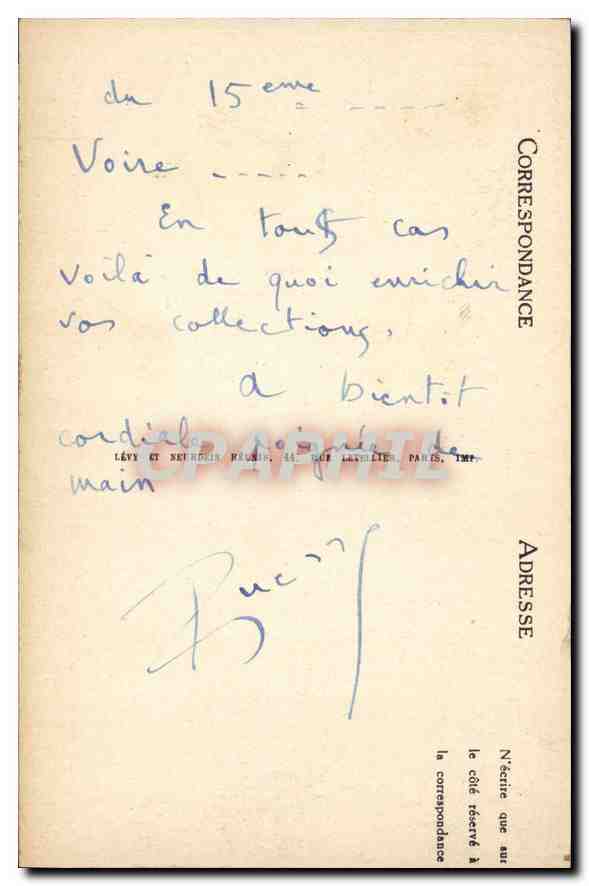 du 15eme - - - - -
Voire - - - - -
En touts cas
voilà de quoi enrichir
vos collections.
a bientôt
cordiale poignée de
main
CPARPHIL
LÉVY ET NEURDEIN RÉUNIS, 44, RUE LETELLIER, PARIS, IMP.
CORRESPONDANCE
ADRESSE
N'écrire que sur
le côté réservé à
la correspondance